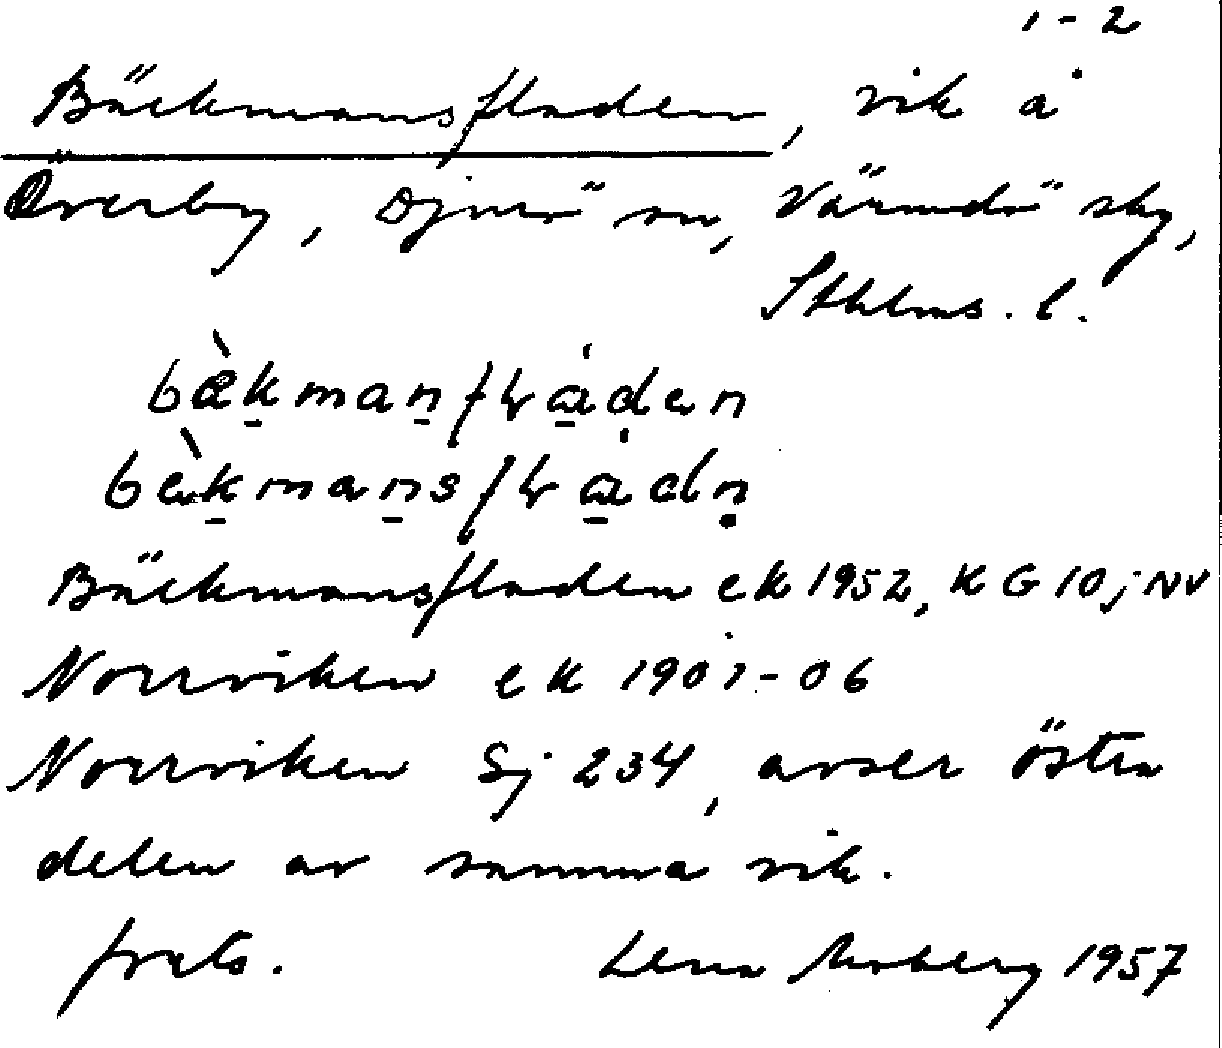 1-2
Bäckmansfladen, vik å
Överby, Djurö sn, Värmdö sky,
Sthlms. l.
bæ̀kmanfɫáden
bèkmansfɫádn̥
Bäckmansfladen ek 1952, K G 10j NV
Norrviken ek 1901-06
Norrviken Sj 234, avser östra
delen av samma vik.
forts. Lena Moberg 1957